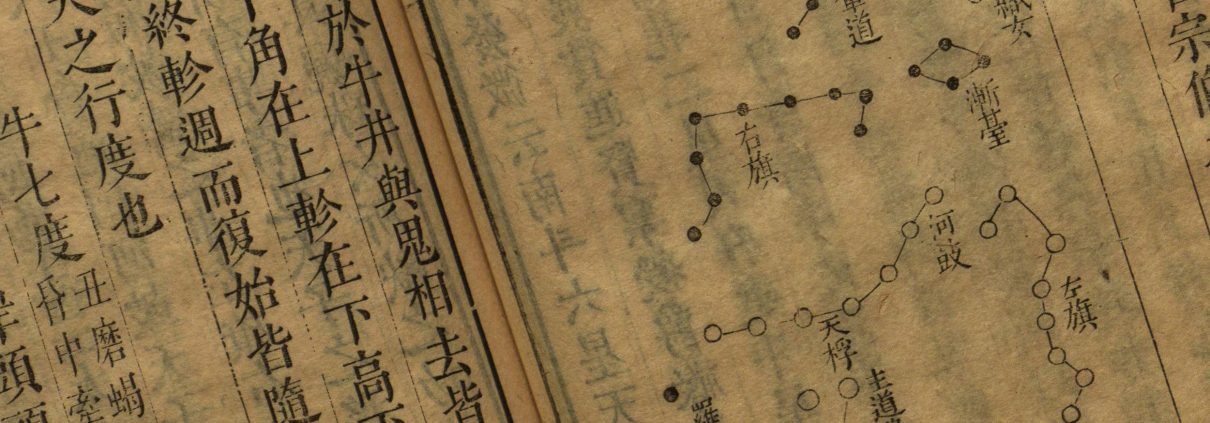 宗
織女
漸臺
輦道
左旗
河鼓
右旗
天桴
道
羅
於牛井與鬼相去皆
角在上軫在下高
終軫週而復始皆隨
天之行度也
牛七度
丑磨蝎
昏中牽
頭